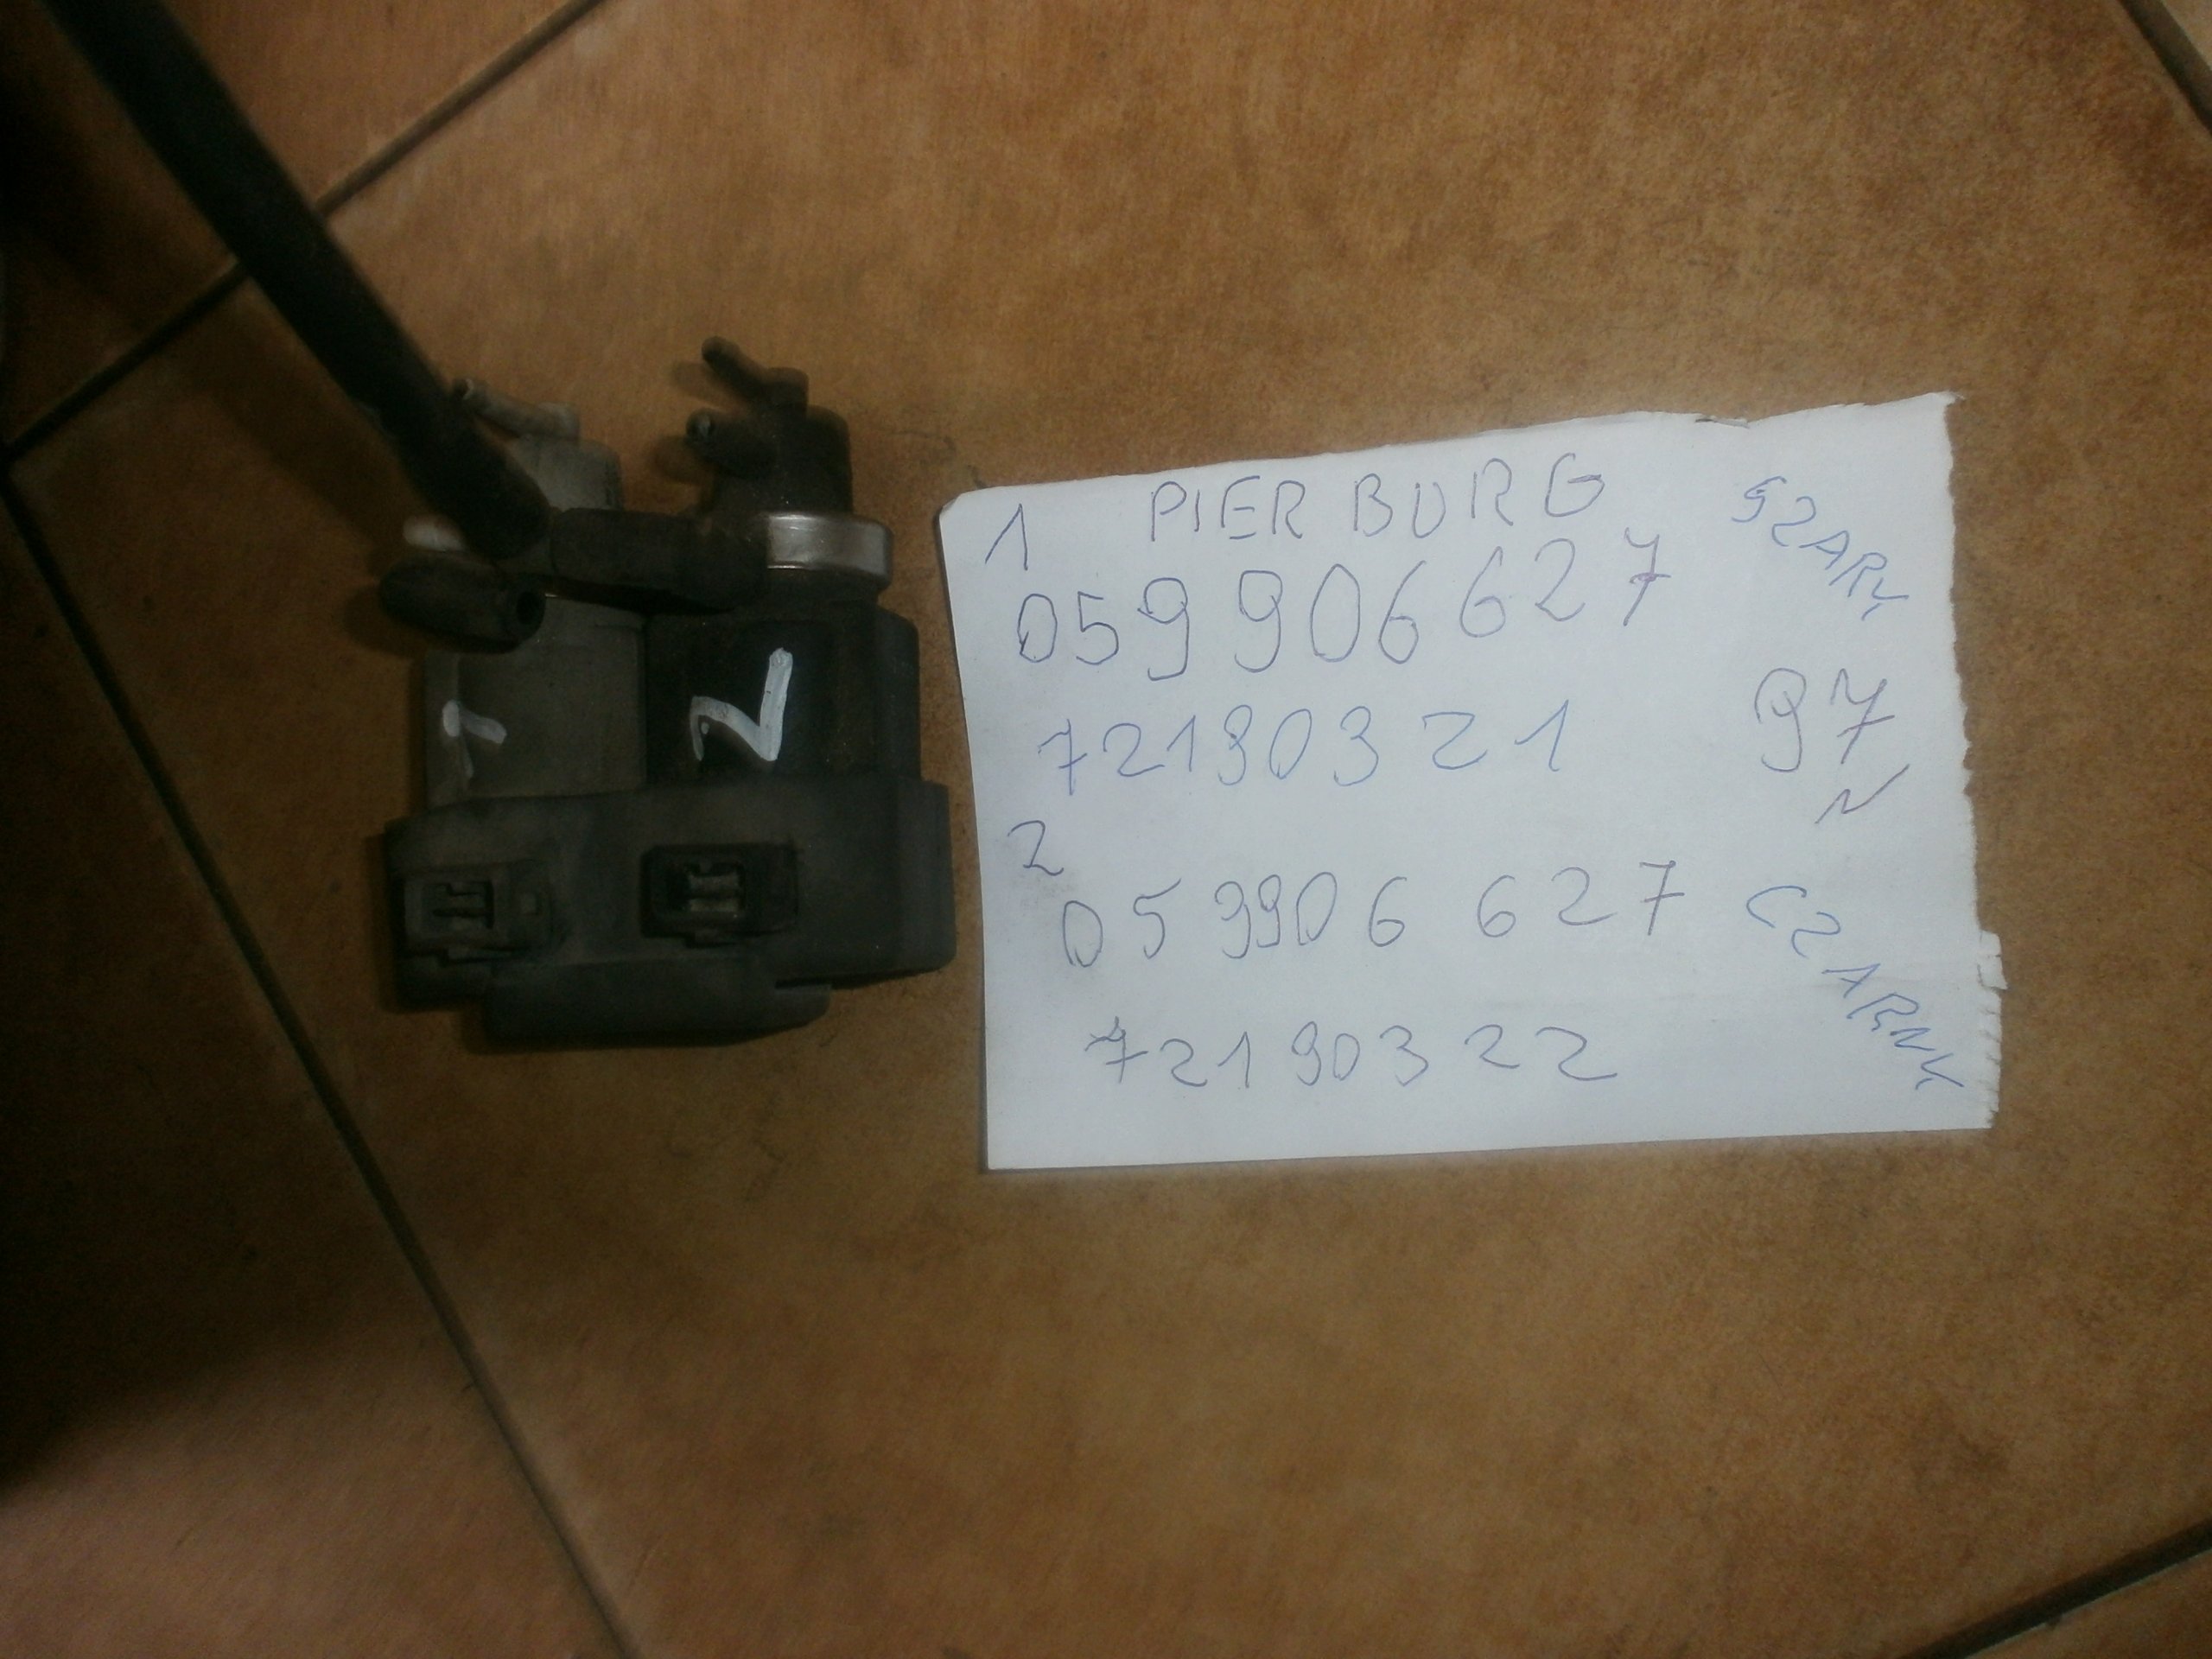 1 PIERBURG SZARY
059 906 627
72190321 97
N
2
059906 627 CZARNY
72190322
1 2